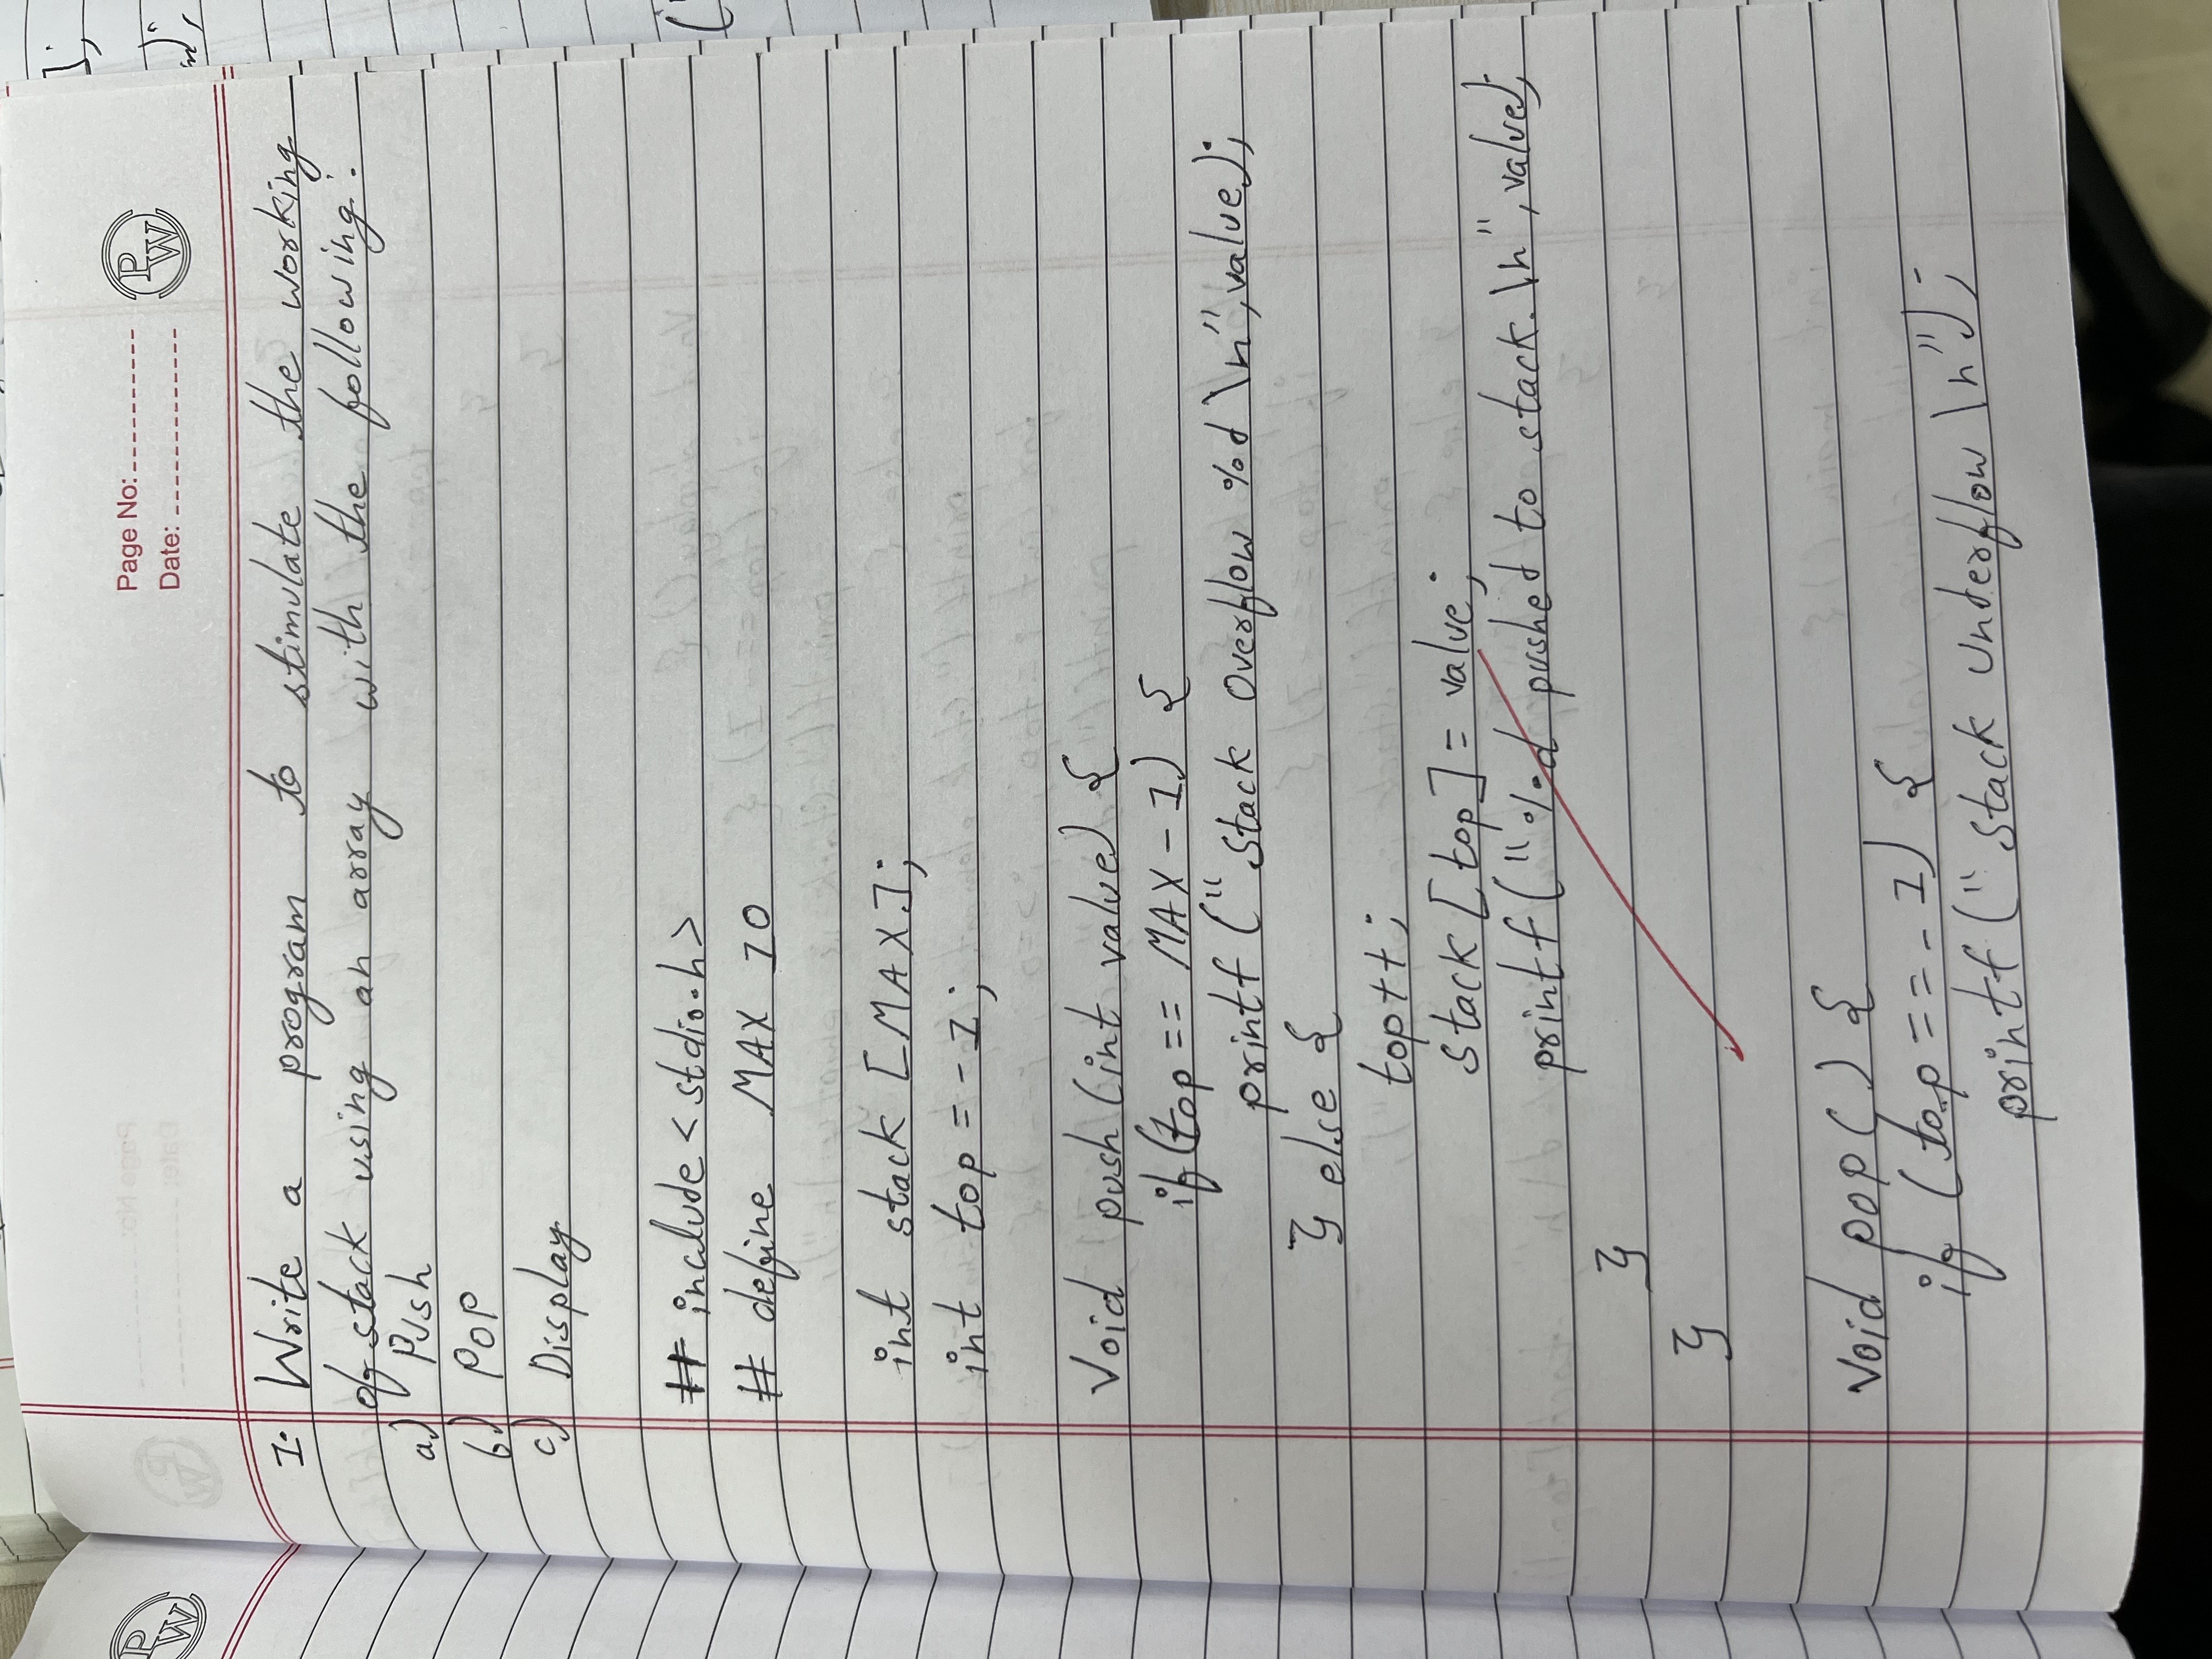 Page No:
Date:
PW
PW
1. Write a program to stimulate the working
of stack using an array with the following:
a) Push
b) Pop
c) Display
# include <stdio.h>
# define MAX 10
int stack [MAX];
int top = -1;
Void push (int value) {
if (top == MAX - 1) {
printf (" Stack Overflow %d \n", value);
} else {
top++;
stack [top] = value;
printf (" %d pushed to stack. \n", value);
}
}
Void pop () {
if (top == -1) {
printf (" Stack Underflow \n");